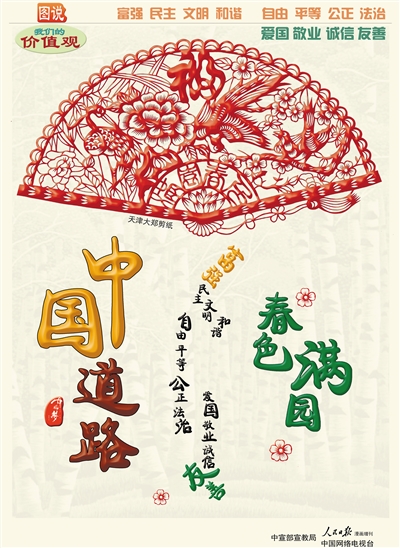 图说
我们的
价值观
富强 民主 文明 和谐 自由 平等 公正 法治
爱国 敬业 诚信 友善
福
天津大郑剪纸
中国
道路
富强
民主
文明
和谐
自由平等
公正法治
爱国敬业诚信
友善
春色
满园
中宣部宣教局 人民日报 漫画增刊
中国网络电视台